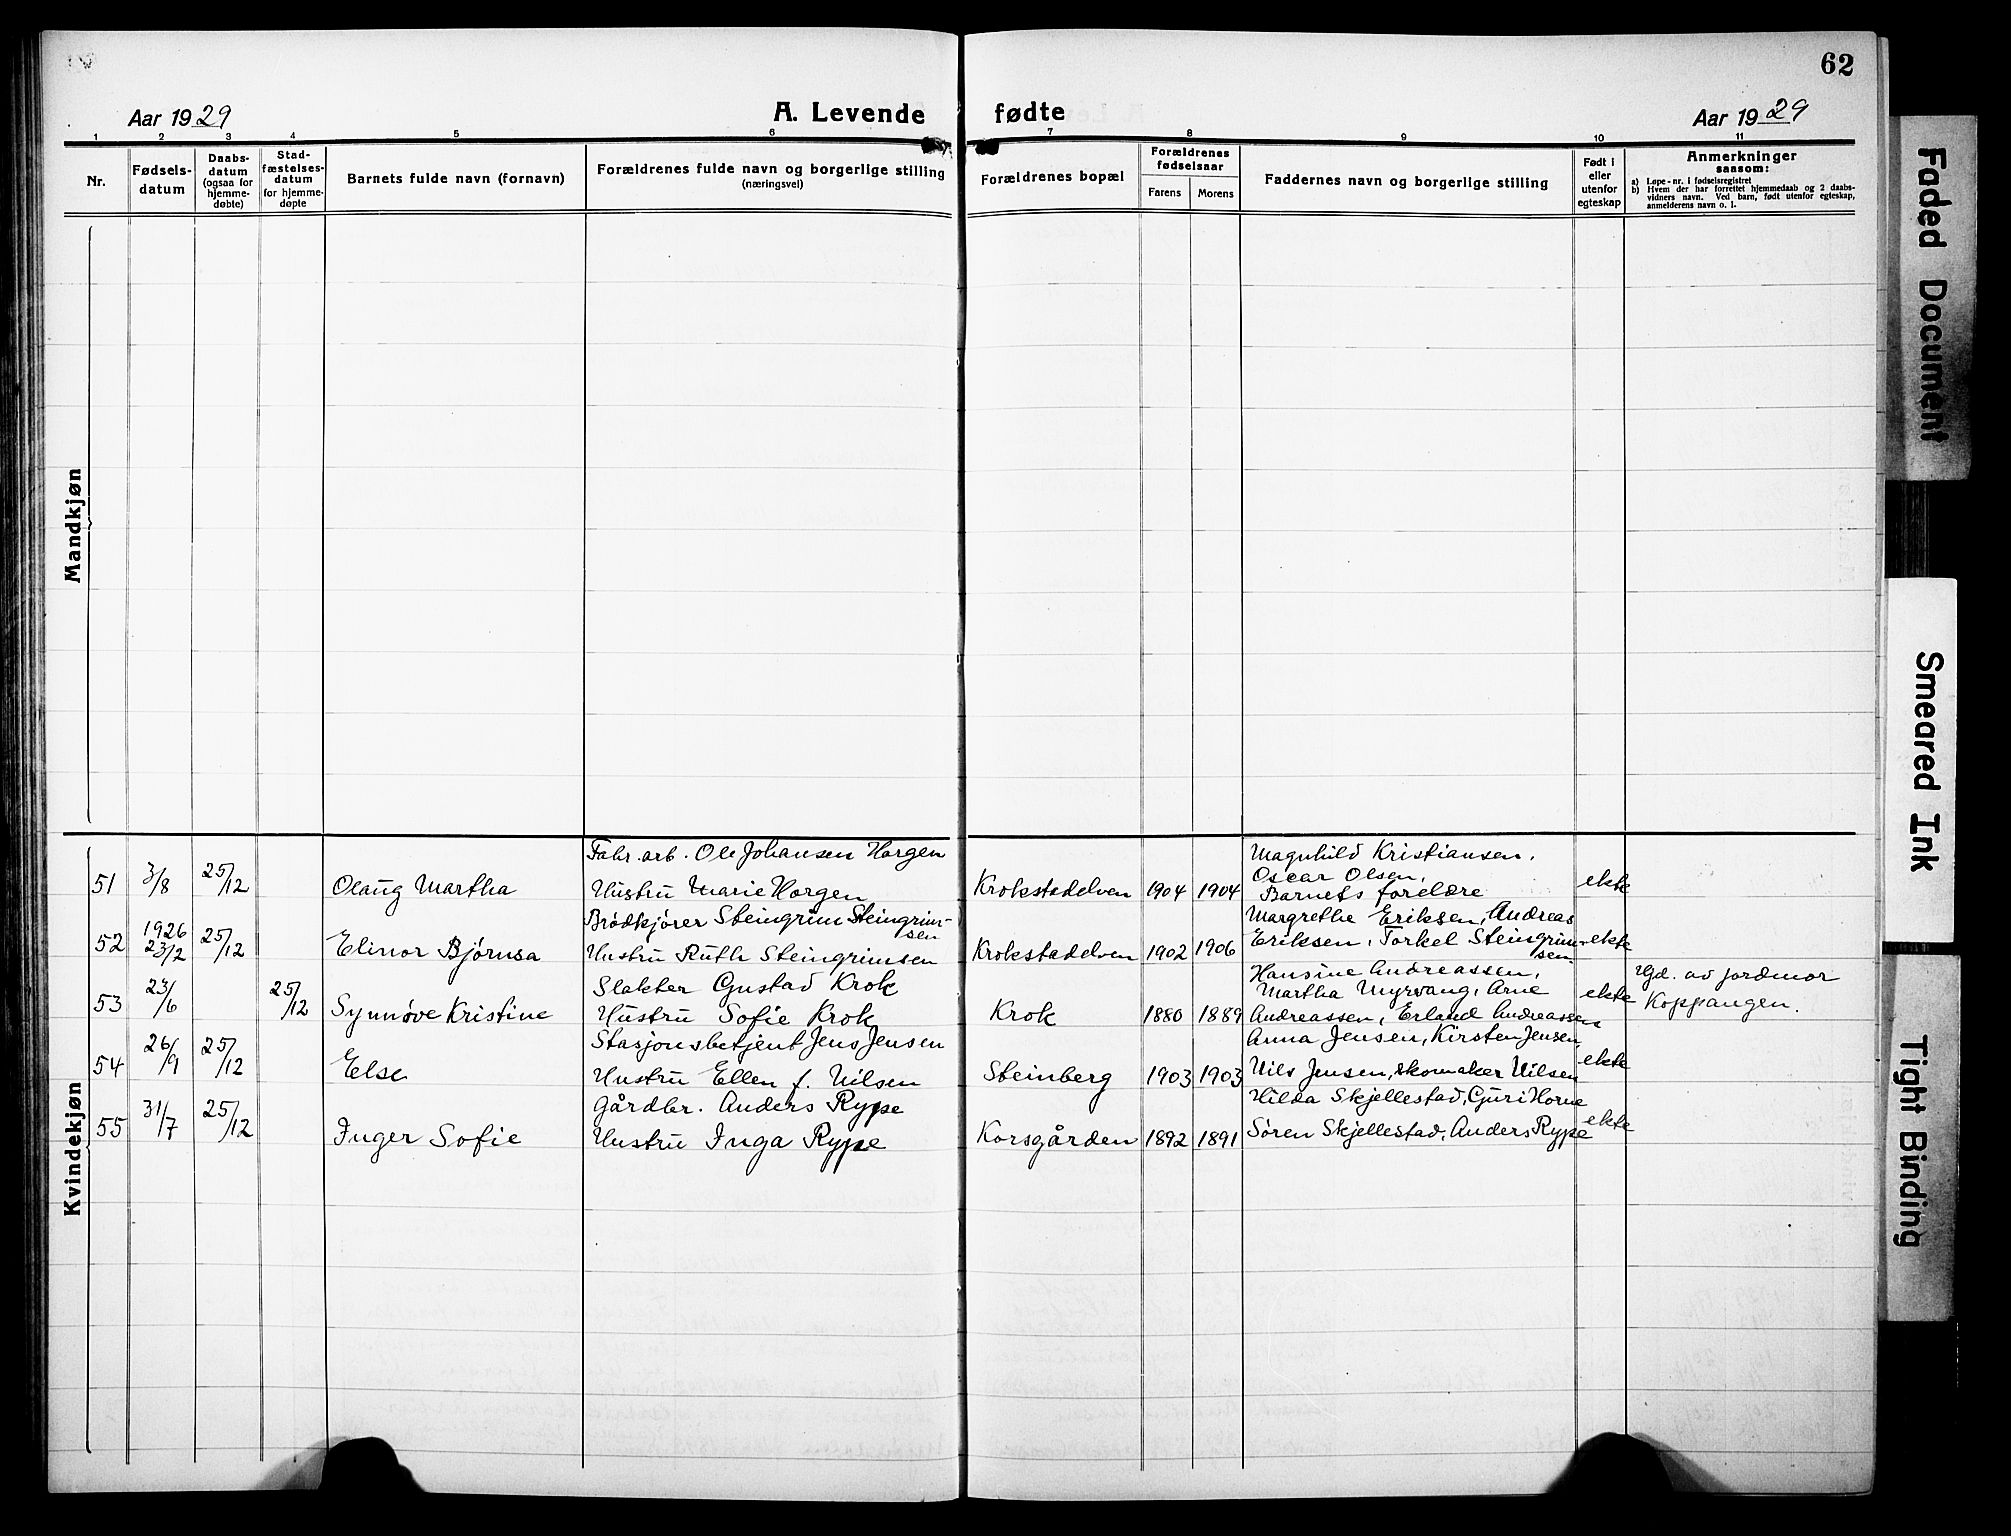 62
Aar 1929
A. Levende fødte
Aar 1929
1 2 3 4 5 6 7 8 9 10 11
Nr.
Fødsels-
datum
Daabs-
datum
(ogsaa for
hjemme-
døbte)
Stad-
fæstelses-
datum
for hjemme-
døpte
Barnets fulde navn (fornavn)
Forældrenes fulde navn og borgerlige stilling
(næringsvei)
Forældrenes bopæl
Forældrenes
fødselsaar
Farens
Morens
Faddernes navn og borgerlige stilling
Født i
eller
utenfor
egteskap
Anmerkninger
saasom:
a) Løpe-nr. i fødselsregistret
b) Hvem der har forrettet hjemmedaab og 2 daabs-
vidners navn. Ved barn, født utenfor egteskap,
anmelderens navn o. l.
Mandkjøn
Kvindekjøn
51 3/8 25/12 Olaug Martha
Fabr. arb. Ole Johansen Horgen
Hustru Marie Horgen
Krokstadelven 1904 1904
Magnhild Kristiansen,
Oscar Olsen,
Barnets forelære
ekte
52 1926
23/2 25/12 Elinor Bjørnsa
Brødkjører Steingrim Steingrim-
sen
Hustru Ruth Steingrimsen
Krokstadelven 1902 1906
Margrethe Eriksen, Andreas
Eriksen, Torkel Steingrim-
sen
ekte
53 23/6 25/12 Synnøve Kristine
Slakter Gustad Krok
Hustru Sofie Krok
Krok 1880 1889
Hansine Andreassen,
Martha Myrvang, Arne
Andreassen, Erland Andreassen
ekte
Hjd. av jordmor
Koppangen.
54 26/9 25/12 Else
Stasjonsbetjent Jens Jensen
Hustru Ellen f. Nilsen
Steinberg 1903 1903
Anna Jensen, Kirsten Jensen,
Nils Jensen, skomaker Nilsen
ekte
55 31/7 25/12 Inger Sofie
Gårdbr. Anders Rype
Hustru Inga Rype
Korsgården 1892 1891
Hilda Skjellestad, Guri Horne
Søren Skjellestad, Anders Rype
ekte
Faded Document
Smeared Ink
Tight Binding